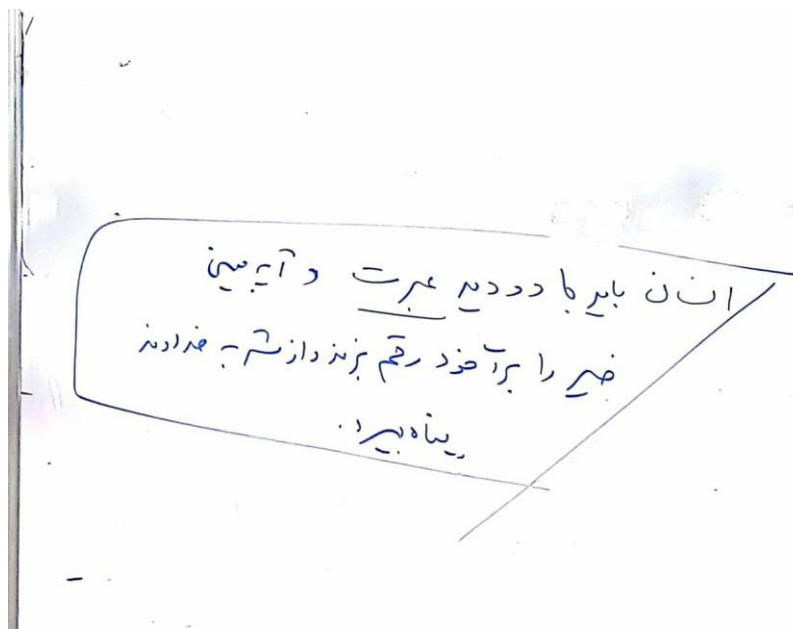 انسان باید با دو دید عبرت و آیه بینی
خیر را برا خود رقم بزند و از شر به خداوند
پناه ببرد.